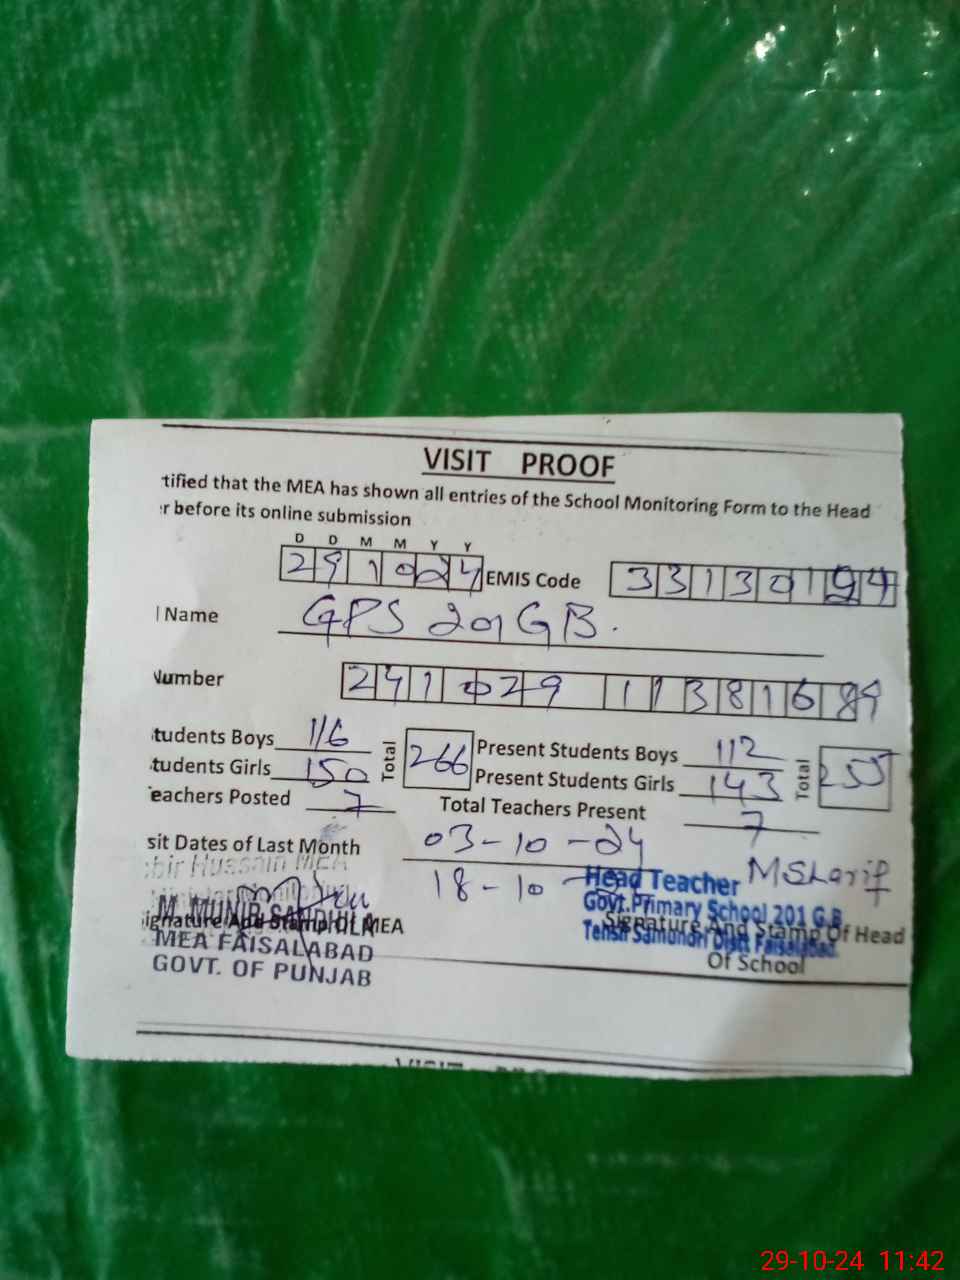 VISIT PROOF
tified that the MEA has shown all entries of the School Monitoring Form to the Head
r before its online submission
D D M M Y Y
291024 EMIS Code 33130194
l Name GPS 201 GB.
Number 241029 11381689
tudents Boys 116 Total 266 Present Students Boys 112 Total 255
tudents Girls 150 Present Students Girls 143
eachers Posted 7 Total Teachers Present 7
sit Dates of Last Month 03-10-24
18-10
MSharif
bir Hussain MEA
Head Teacher
Govt. Primary School 201 G.B
Tehsil Samundri Distt Faisalabad.
M. MUNIR
ignature And Stamp Of MEA
Signature And Stamp Of Head
Of School
MEA FAISALABAD
GOVT. OF PUNJAB
29-10-24 11:42